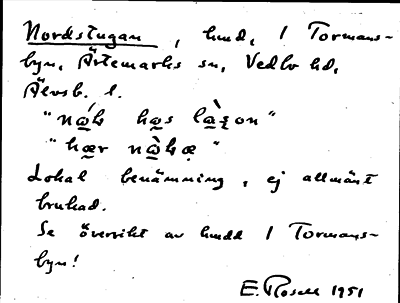 Nordstugan, hmd, i Tormans-
byn, Ärtemarks sn, Vedbo hd,
Älvsb. l.
"
"
Lokal benämning, ej allmänt
brukad.
Se översikt av hmdd i Tormans-
byn!
E. Rosell 1951